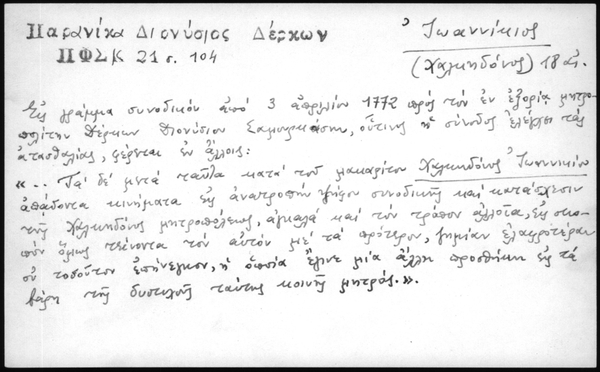 Παρανίκα Διονύσιος Δέρκων
ΠΦΣΚ 21 σ. 104
Ἰωαννίκιος
(Χαλκηδόνος) 18 αἰ.
Εἰς γράμμα συνοδικόν ἀπό 3 ἀπριλίου 1772 πρός τόν ἐν ἐξορίᾳ μητρο-
πολίτην Δέρκων Διονύσιον, οὗτινος ἡ σύνοδος ἐλέγχει τάς
ἀτασθαλίας, φέρεται ἐν ἄλλοις:
«... Τά δέ μετά ταῦτα κατά τοῦ μακαρίτου Χαλκηδόνος Ἰωαννικίου
ἀπᾴδοντα κινήματα εἰς ἀνατροπήν ψήφου συνοδικῆς καί κατάσχεσιν
τῆς Χαλκηδόνος μητροπόλεως, ἀγκαλά καί τόν τρόπον ἀλλοῖα, εἰς σκο-
πόν ὅμως τείνοντα τόν αὐτόν μέ τά πρότερον, ζημίαν ἐλαφροτέραν
οὐ τοσοῦτον ἐπήνεγκον, ἡ ὁποία ἔγινε μία ἄλλη προσθήκη εἰς τά
βάρη τῆς δυστυχοῦς ταύτης κοινῆς μητρός.».